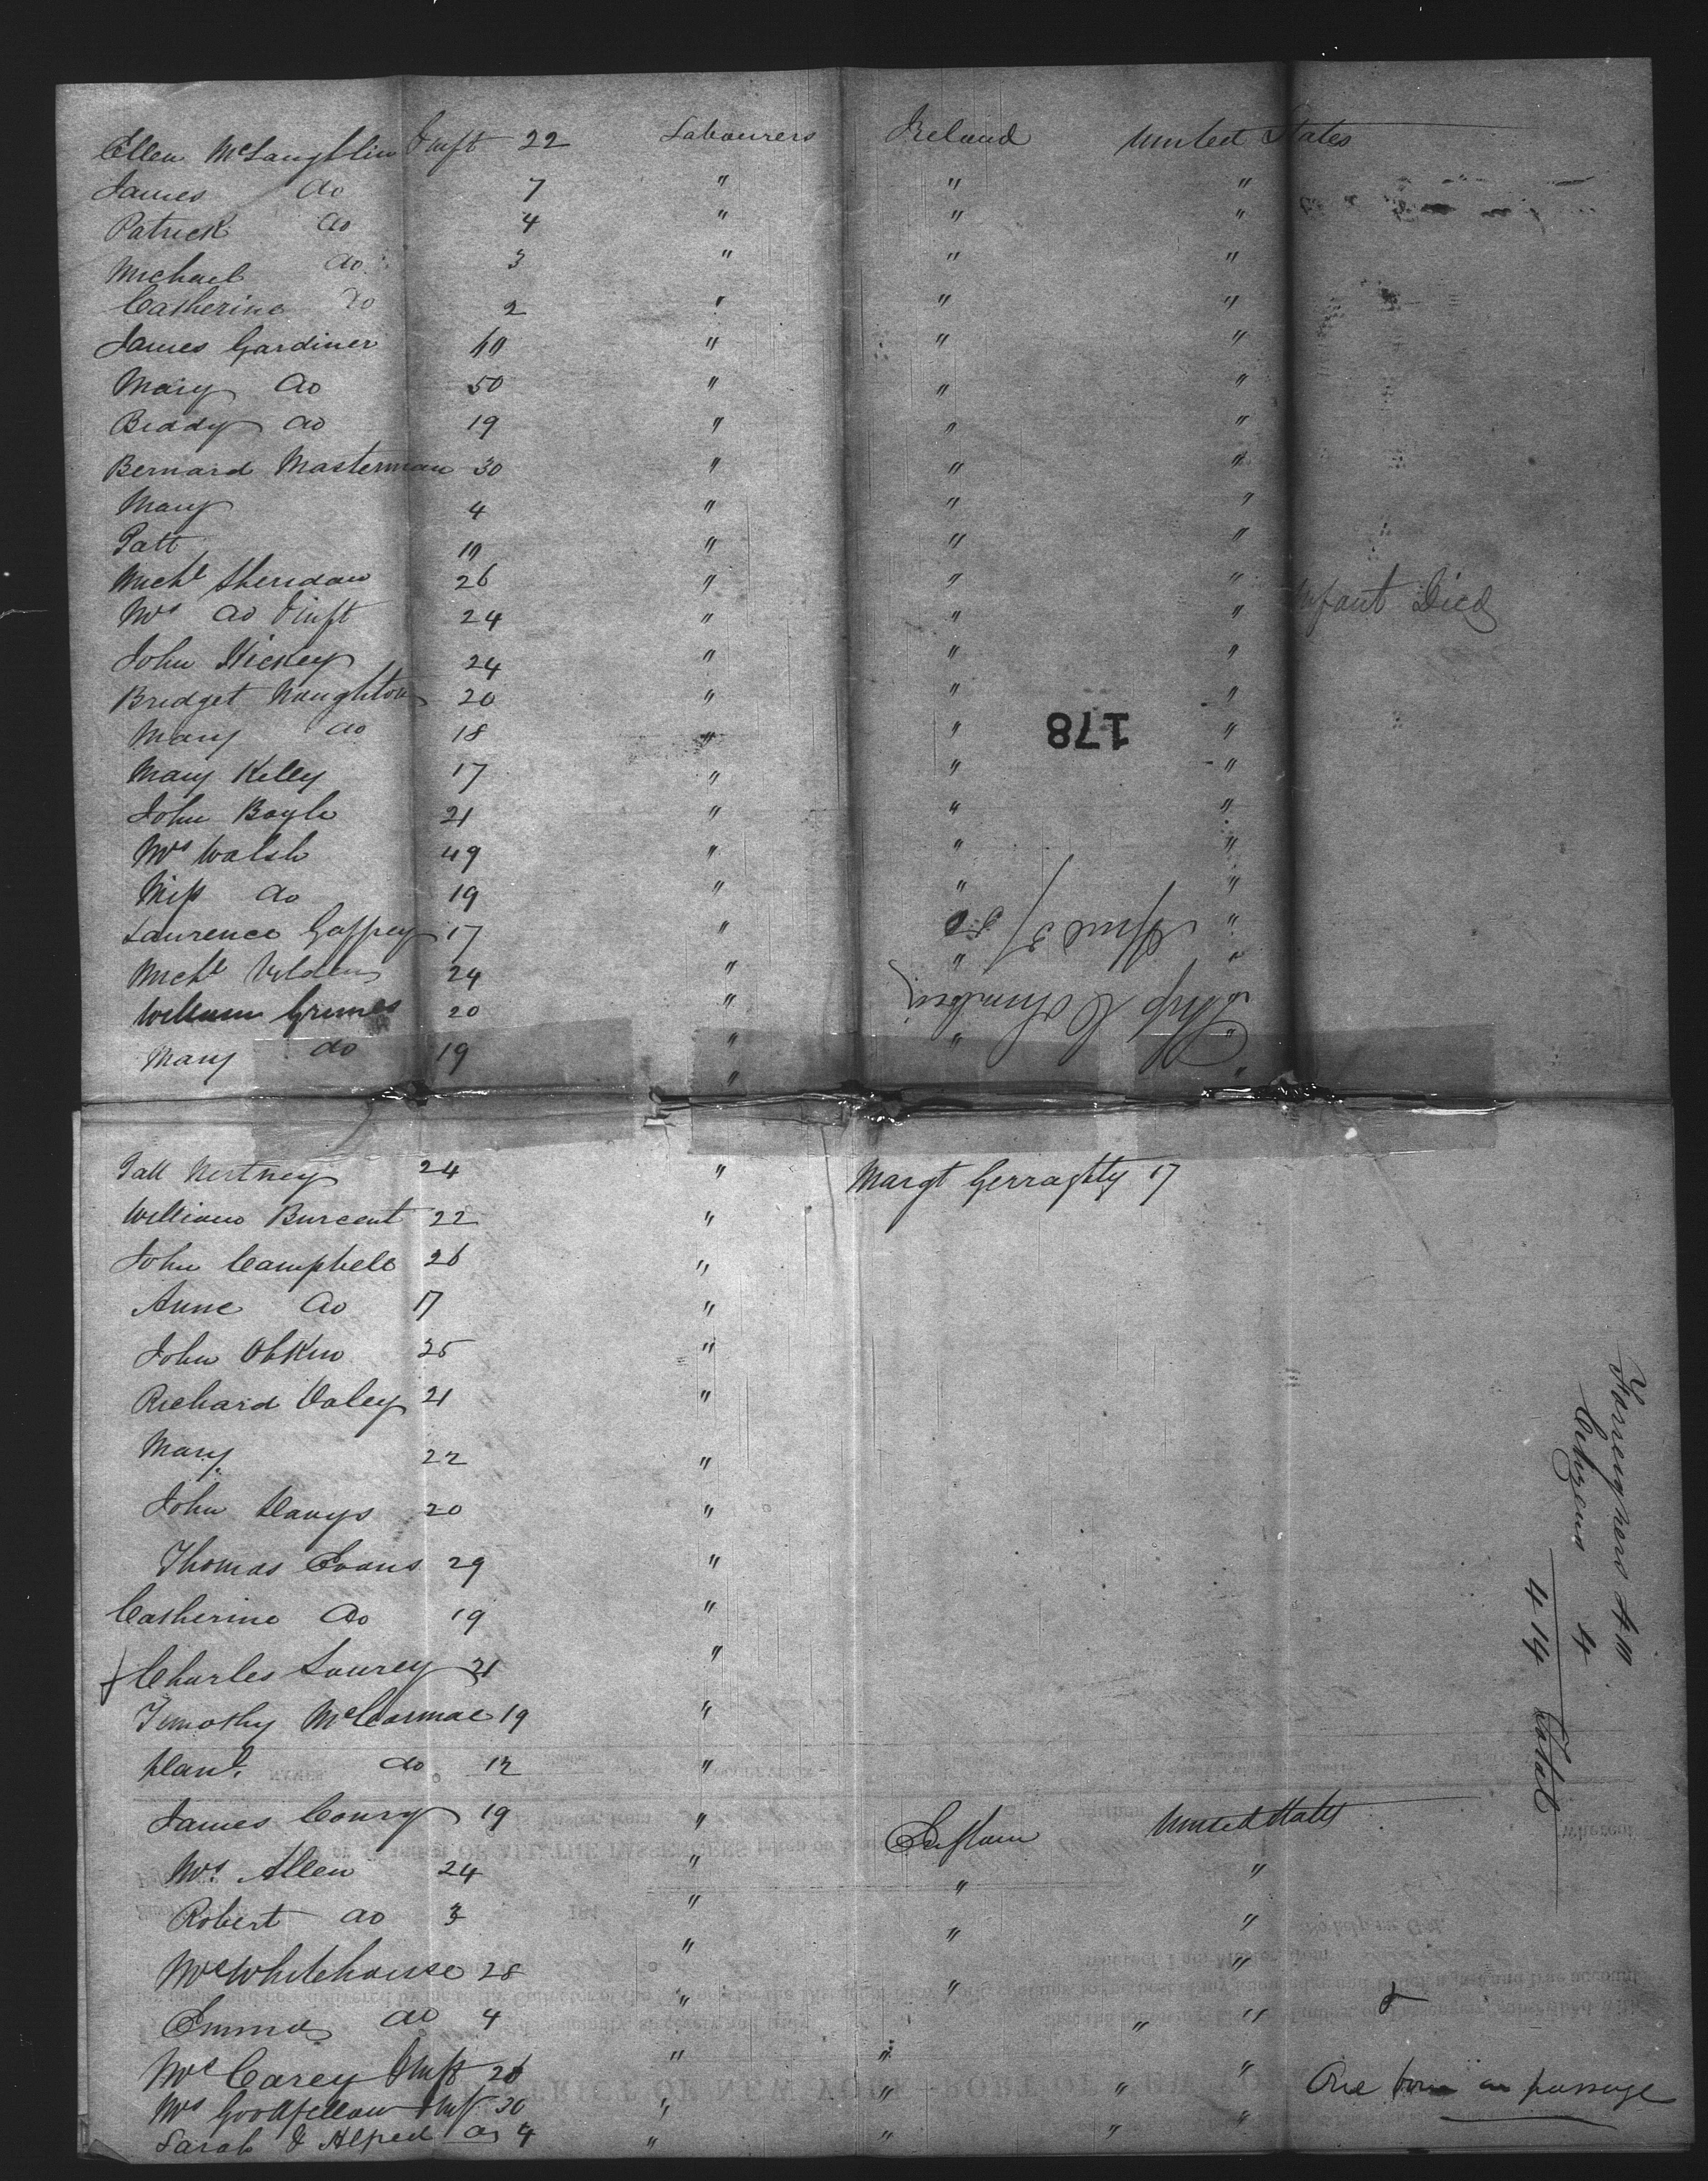 Ellen McLaughlin & inft 22 Labourers Ireland United States
James do 7 " " "
Patrick do 4 " " "
Michael do 3 " " "
Catherine do 2 " " "
James Gardiner " " "
Mary do 50 " " "
Biddy do 19 " " "
Bernard Masterman 30 " " "
Mary 4 " " "
Patt " " "
Michl Sheridan 26 " " "
Mrs do & inft 24 " " " Infant Died
John Hickey 24 " " "
Bridget Naughton 20 " " "
Mary do 18 " " "
178
Mary Kelly 17 " " "
John Boyle 21 " " "
Mrs Walsh 49 " " "
Miss do 19 " " "
Laurence Gaffney 17 " "
Michl 24 " " "
William Grimes 20 "
Mary do 19 " " "
Ship Columbia
"
Patt Nertney 24 " Margt Gerraghty 17
William Burcent 22 "
John Campbell 26 "
Anne do 17 "
John 25 "
Richard Daley 21 "
Mary 22 "
John Davys 20 "
Thomas Evans 29 "
Catherine do 19 "
Charles Lourey 21 "
Timothy McCormac 19 "
Danl. do 12 "
James Conry 19 " United States
Mrs Allen 24 " " "
Robert do 3 " " "
Mrs Whitehouse 28 " " "
Emma do 4 " " "
Mrs Carey & inft 26 " " "
Mrs Goodfellow & inft 30 " " " " One born on passage
Sarah & Alfred do 4 " " " "
Foreigners 410
Citizens 4
414 Total